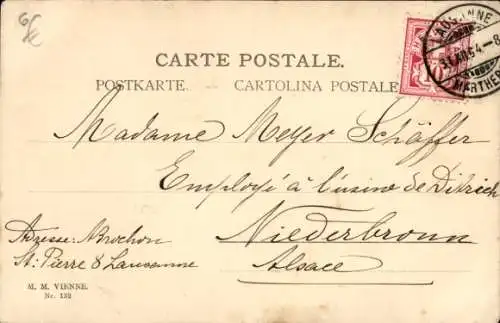 CARTE POSTALE.
POSTKARTE. CARTOLINA POSTALE
Madame Meyer Schäffer
Employé à l'usine de Ditrich
Niederbronn
Alsace
Adresse: Brochon
St. Pierre 8 Lausanne
M. M. VIENNE.
Nr. 132
LAUSANNE
10